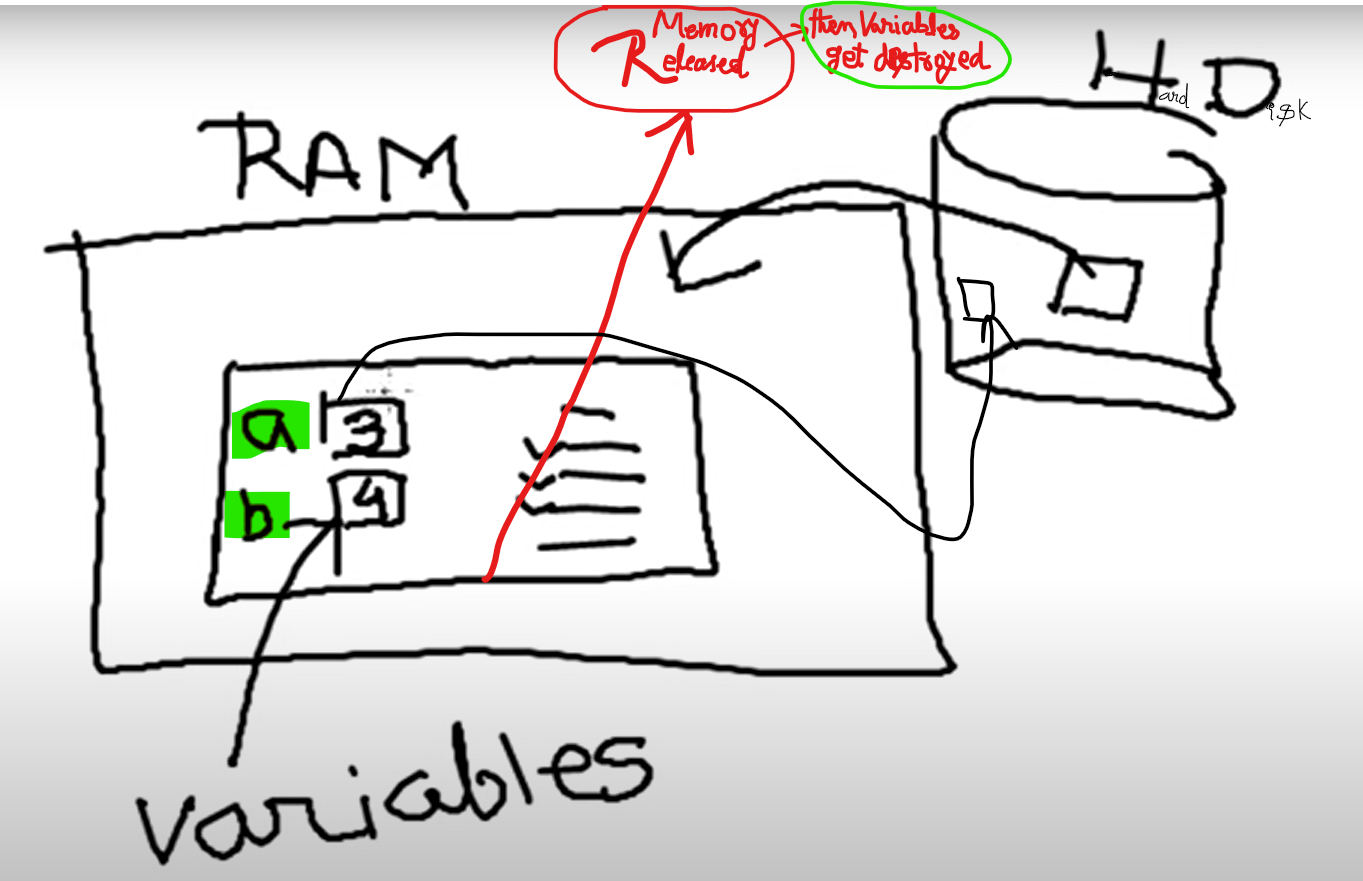 Memory
Released
then Variables
get destroyed
Hard Disk
RAM
a 3
b 4
variables